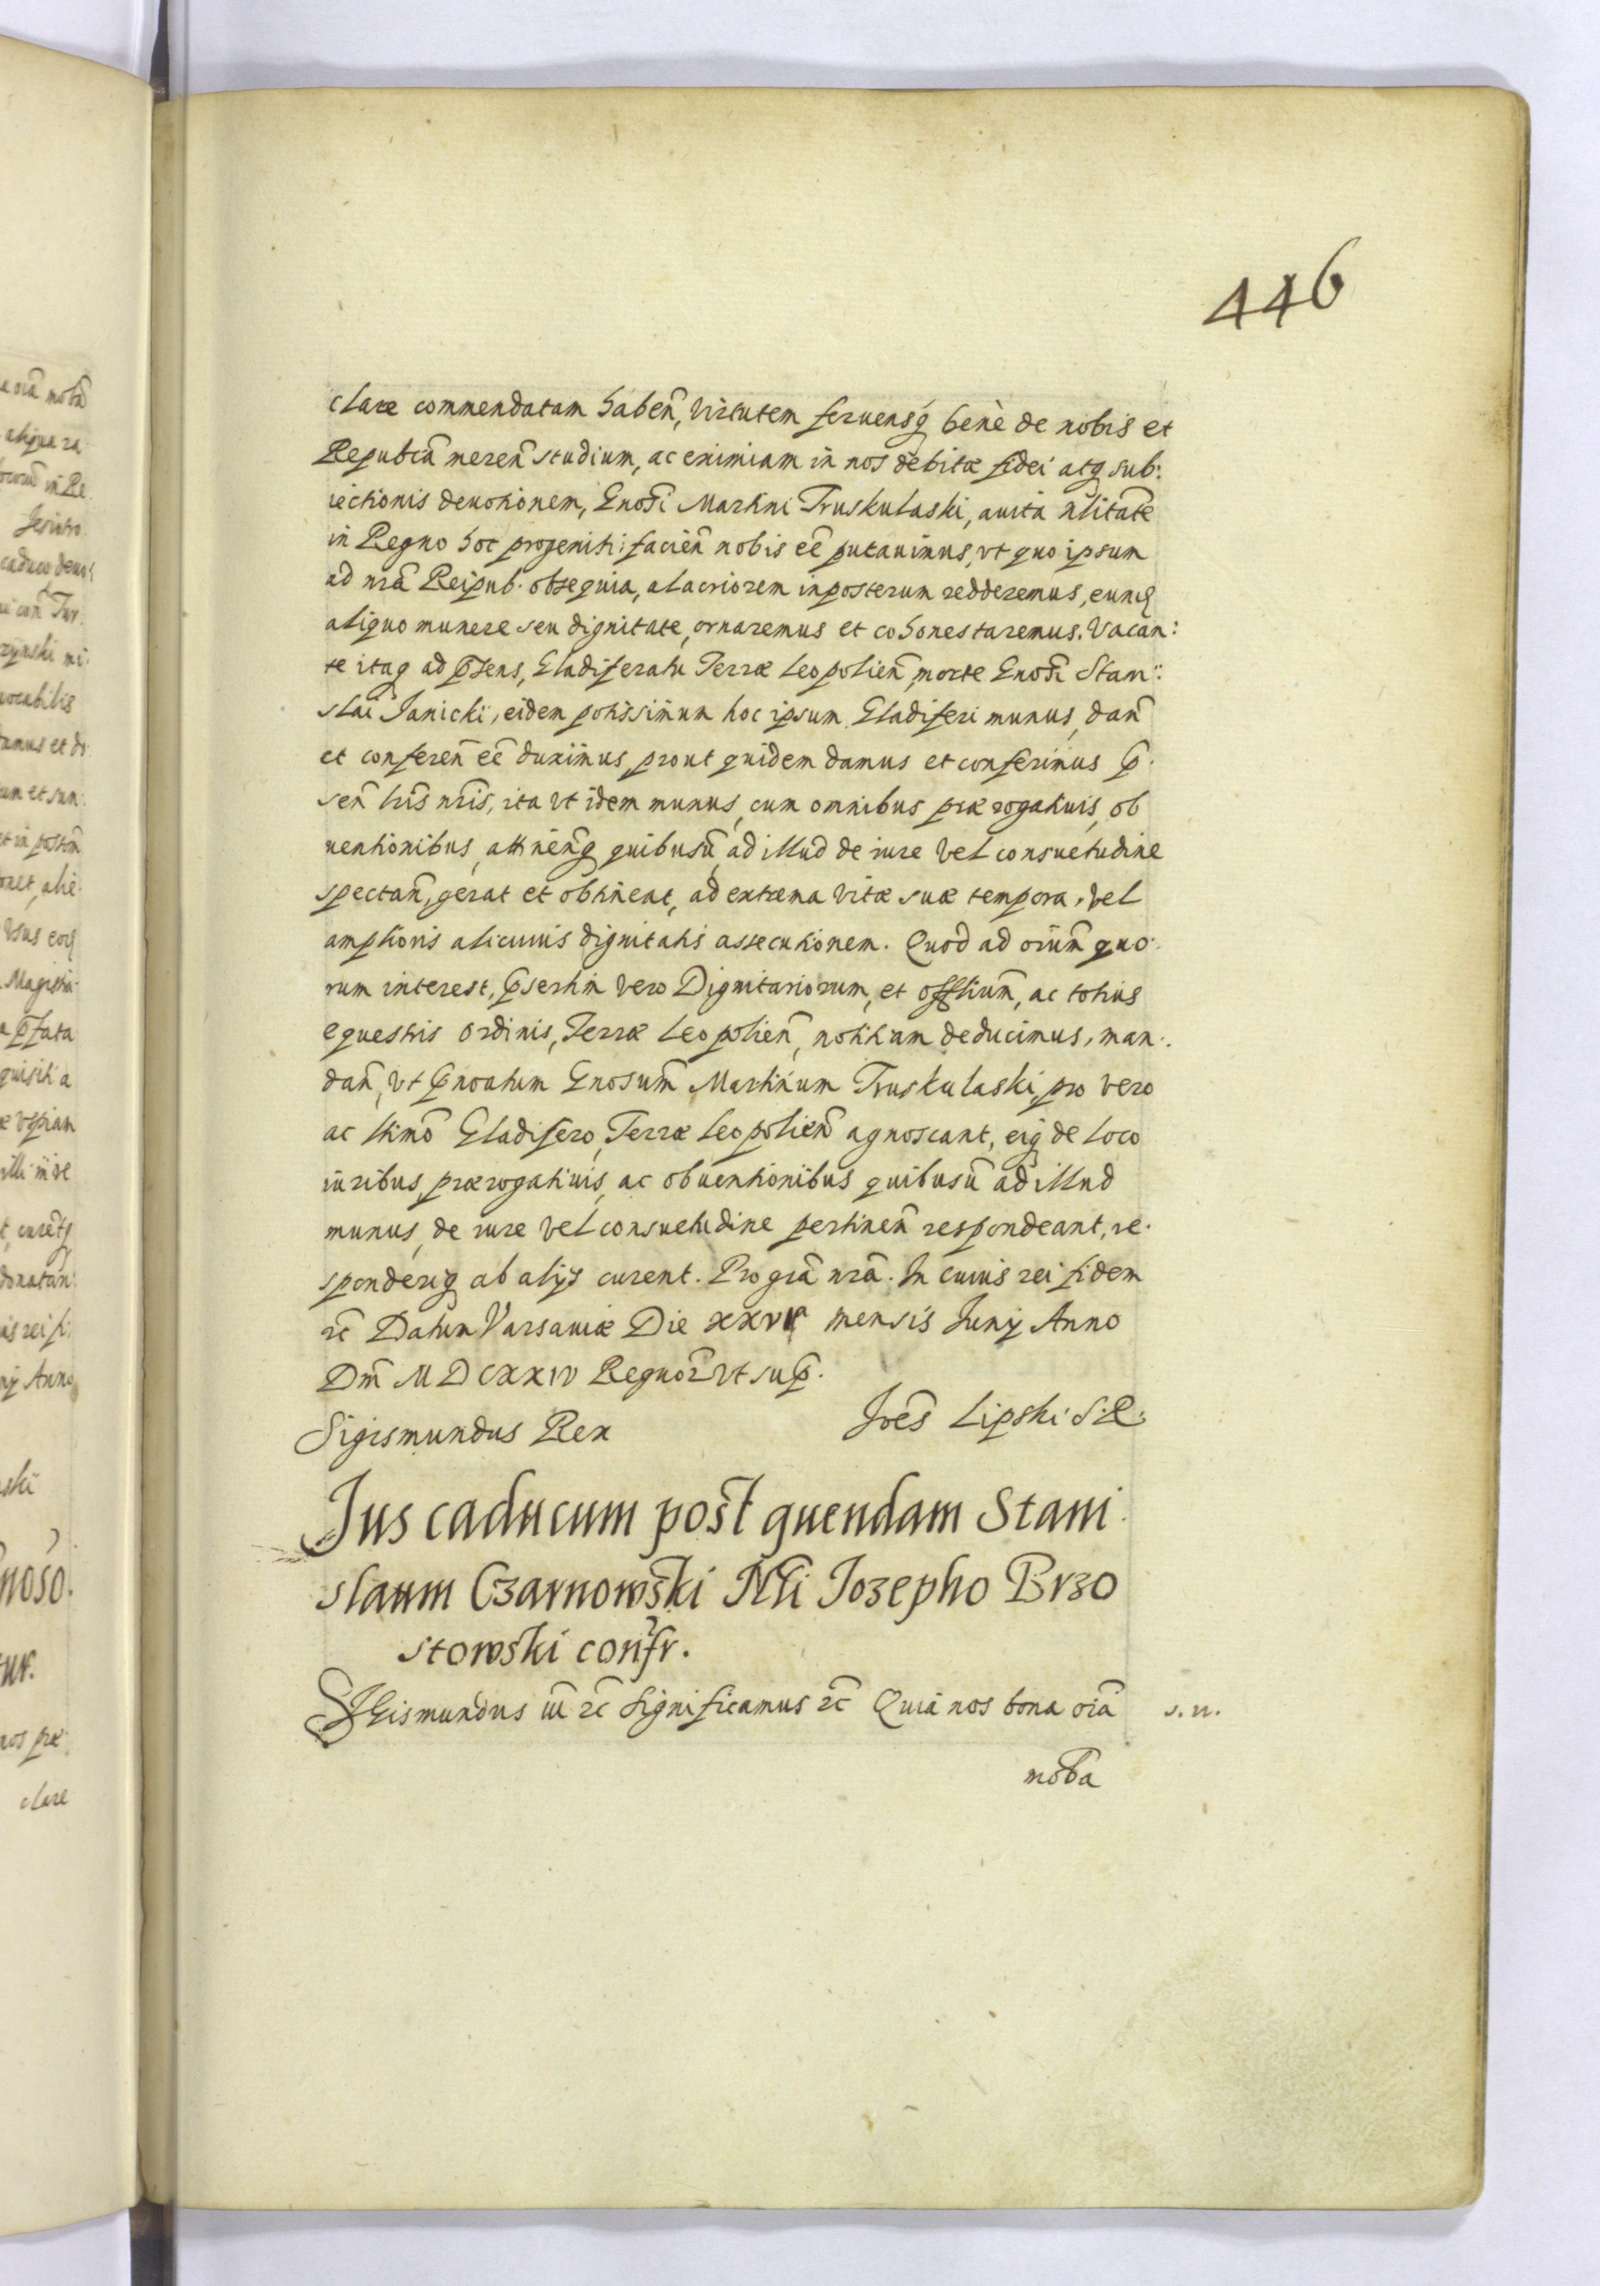 446
clare commendatam haben̄, virtutem feruensq́ benè de nobis et
Repubcā meren̄ studium, ac eximiam in nos debitæ fidei atq́ sub:
iectionis deuotionem, Gnosī Martini Truskulaski, auita n̄litate
in Regno hoc progeniti: facien̄ nobis eē putauimus, vt quo ipsum
ad nrā Reipub. obsequia, alacriorem inposterum redderemus, eunq́
aliquo munere seu dignitate, ornaremus et cohonestaremus. Vacan:
te itaq́ ad p̄sens, Gladiferatu Terræ Leopolien̄, morte Gnosī Stani:
slai Janicki, eidem potissimum hoc ipsum Gladiferi munus, dan̄
et conferen̄ eē duximus, prout quidem damus et conferimus p̄
sen̄ lrīs nrīs, ita vt idem munus, cum omnibus prærogatiuis, ob
uentionibus, attinen̄q́ quibusū, ad illud de iure vel consuetudine
spectan̄, gerat et obtineat, ad extrema vitæ suæ tempora, vel
amplioris alicuius dignitatis assecutionem. Quod ad oīum quo:
rum interest, p̄sertim vero Dignitariorum, et offlium̄, ac totius
equestris ordinis, Terræ Leopolien̄, notitiam deducimus, man:
dan̄, vt p̄noatum Gnosum̄ Martinum Truskulaski, pro vero
ac ltimo Gladifero, Terræ Leopolien̄ agnoscant, eiq́ de loco
iuribus prærogatiuis, ac obuentionibus quibusū ad illud
munus, de iure vel consuetudine pertinen̄ respondeant, re:
sponderiq́ ab alijs curent. Pro grā nrā. In cuius rei fidem
etc̄ Datum Varsauiæ Die xxvi mensis Junij Anno
Dnī MDCXXIV Regnor̄ vt sup̄.
Sigismundus Rex Joēs Lipski S.R.
Jus caducum post quendam Stani
slaum Czarnowski Nli Jozepho Brzo
stowski confr.
SIGismundus iii etc̄ Significamus etc̄ Quia nos bona oīa s. n.
mobā